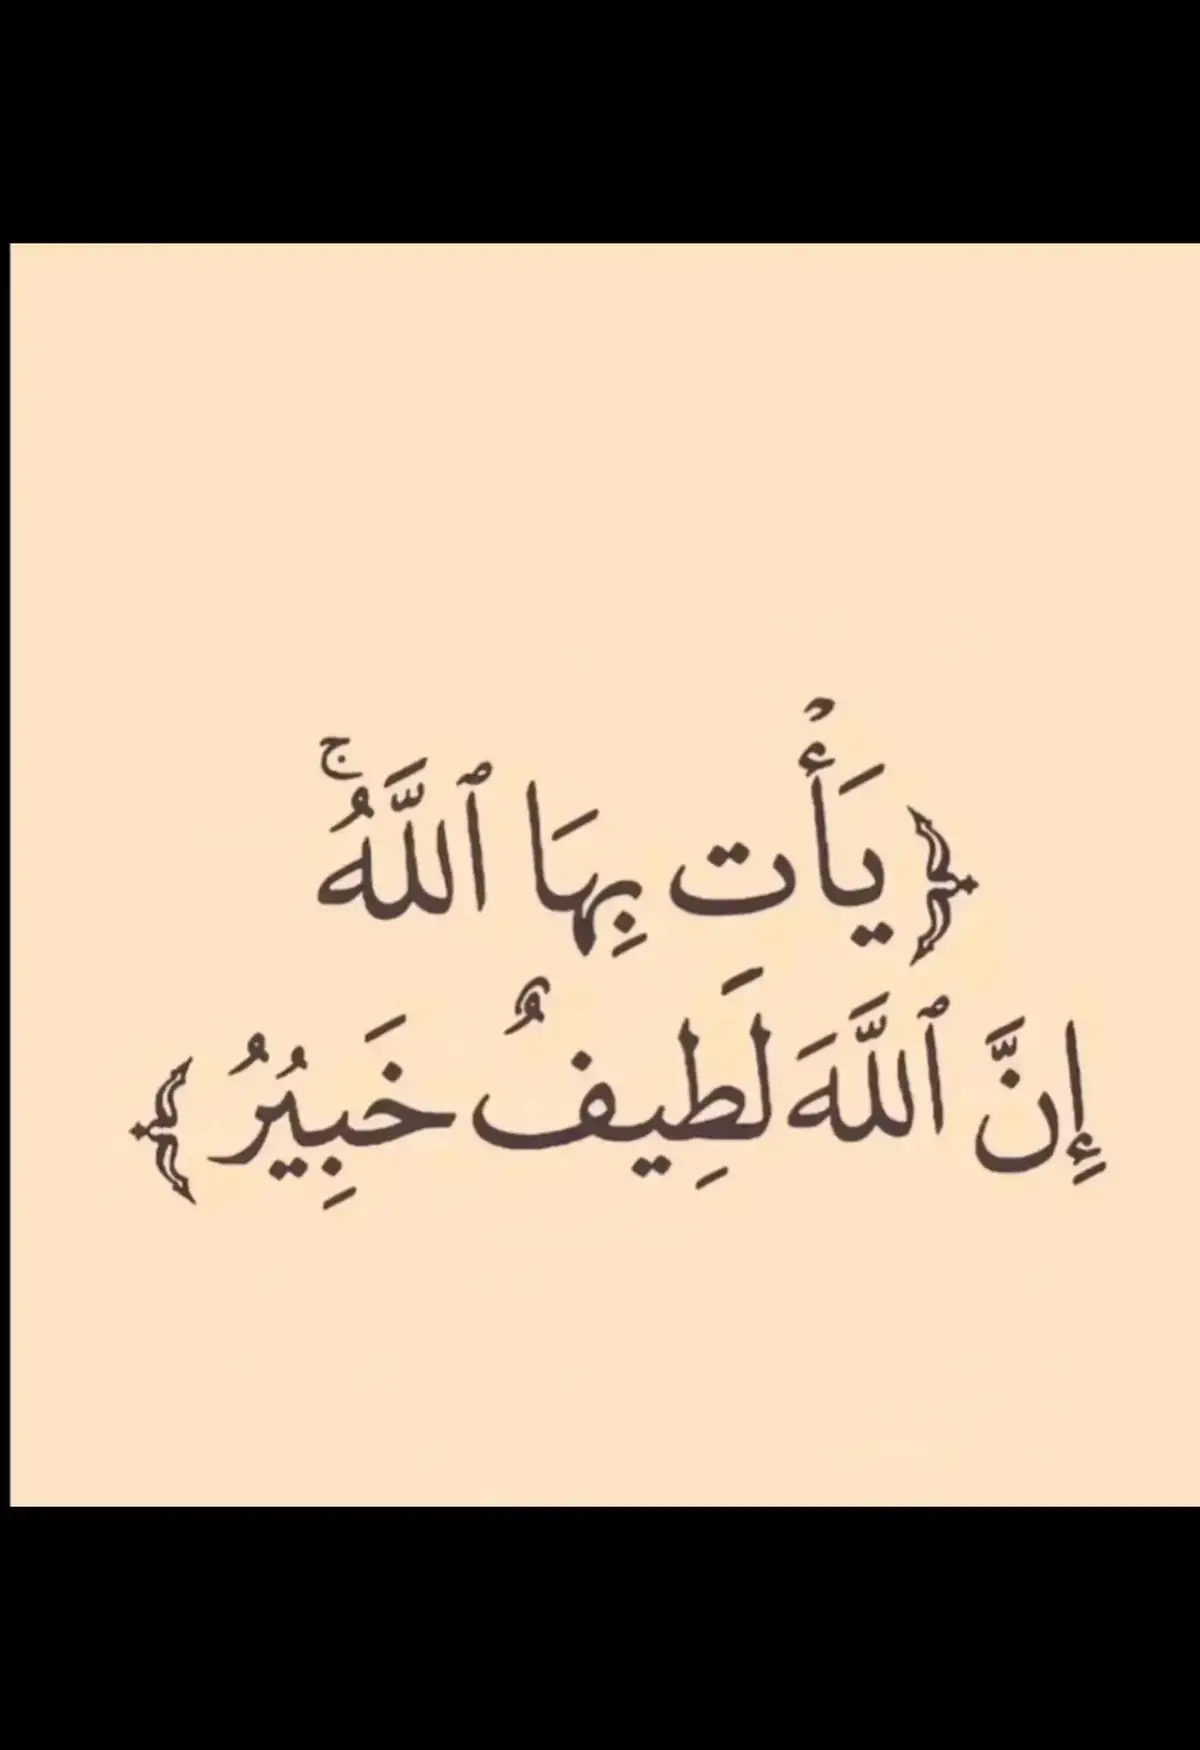 ﴿ يَأْت بِهَا ٱللَّهُۚ
إِنَّ ٱللَّهَ لَطِيفٌ خَبِيُرُ ﴾